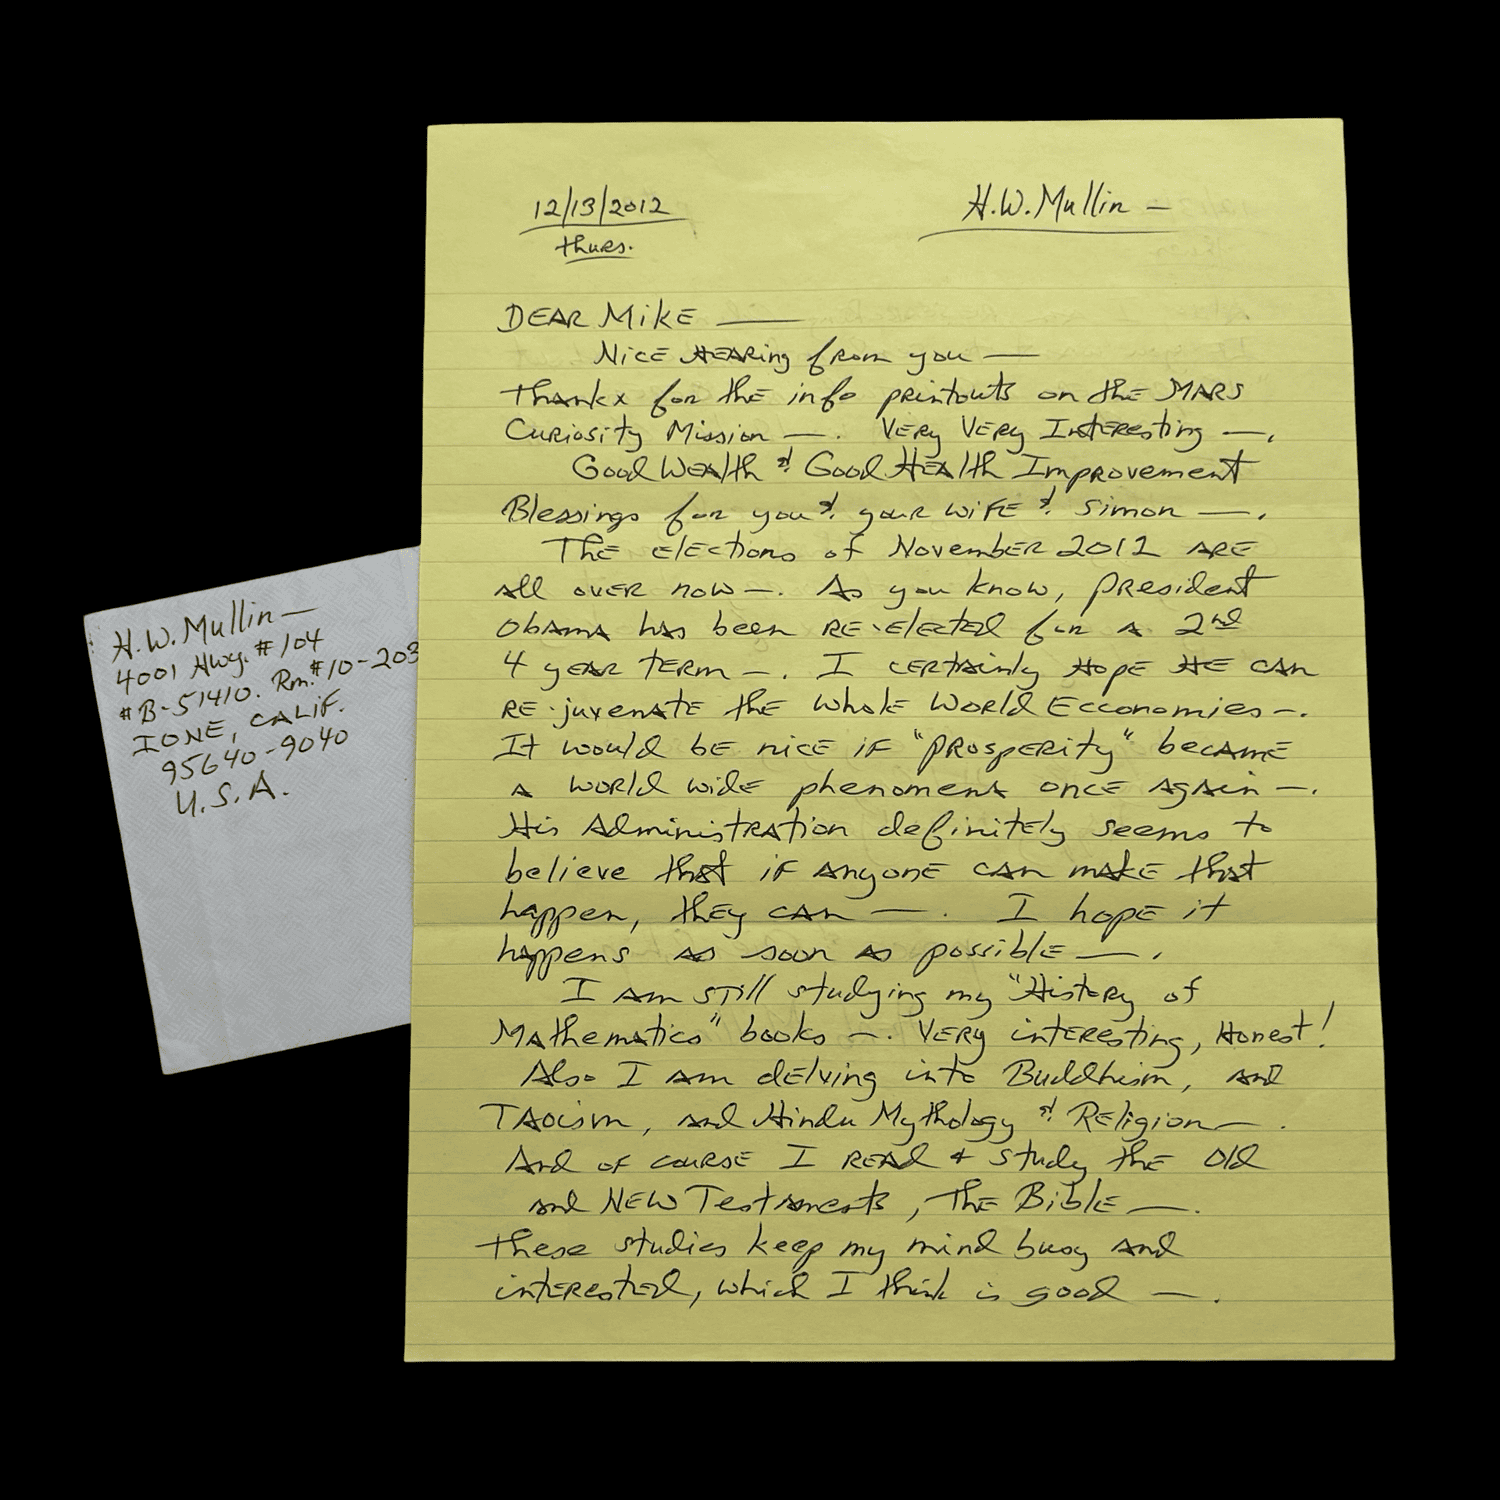 H.W. Mullin —
4001 Hwy. #104
#B-51410. Rm.#10-203
IONE, CALIF.
95640-9040
U.S.A.
12/13/2012
thurs.
H.W. Mullin —
DEAR MikE —
NicE HEARing from you —
Thankx for the info printouts on thE MARS
Curiosity Mission —. VERy VERy IntERESting —.
Good WEAlth & Good HEAlth Improvement
Blessings for you & your wiFE & Simon —.
ThE elEctions of NovembER 2012 ARE
all ovER now —. As you know, prEsident
ObAmA has been RE-elected for a 2nd
4 yEAR tERm —. I cERtAinly HopE HE CAN
RE-juvenatE thE WholE WoRld Ecconomies —.
It would bE nicE iF "pRospERity" becAmE
a woRld widE phenomenA oncE AgAin —.
His AdministRAtion definitEly seems to
believe that iF AnyonE CAN makE that
happen, thEy CAN —. I hopE it
happens as soon as possiblE —.
I am still studying my "HistoRy of
Mathematics" books —. VERy intEREsting, Honest!
Also I am dElving into Buddhism, and
TAoism, and Hindu Mythology & REligion —.
And of couRSE I READ & study thE Old
and NEW Testaments, ThE BiblE —.
These studies keep my mind busy and
intERested, which I think is good —.